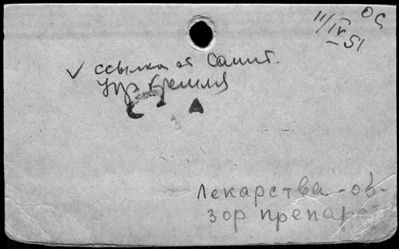 ОС
11/IV 51
✓ ссылка от Санит.
Упр. Кремля
3
Лекарства - об-
зор препара